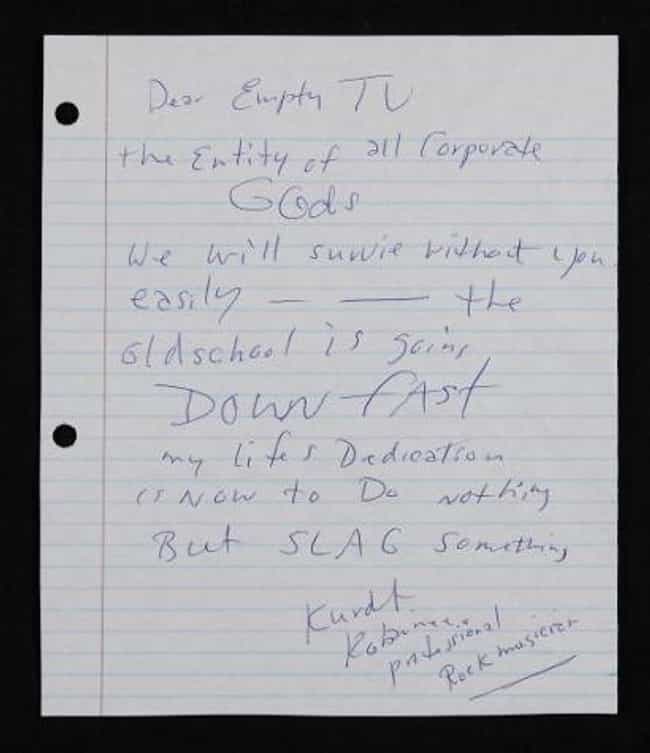 Dear Empty TV
the Entity of all Corporate
GODs
We will survie without you
easily — — the
oldschool is going
DOWN fASt
my lifes Dedication
is NOW to Do nothing
But SLAG Something
Kurdt
professional
Rock musicier